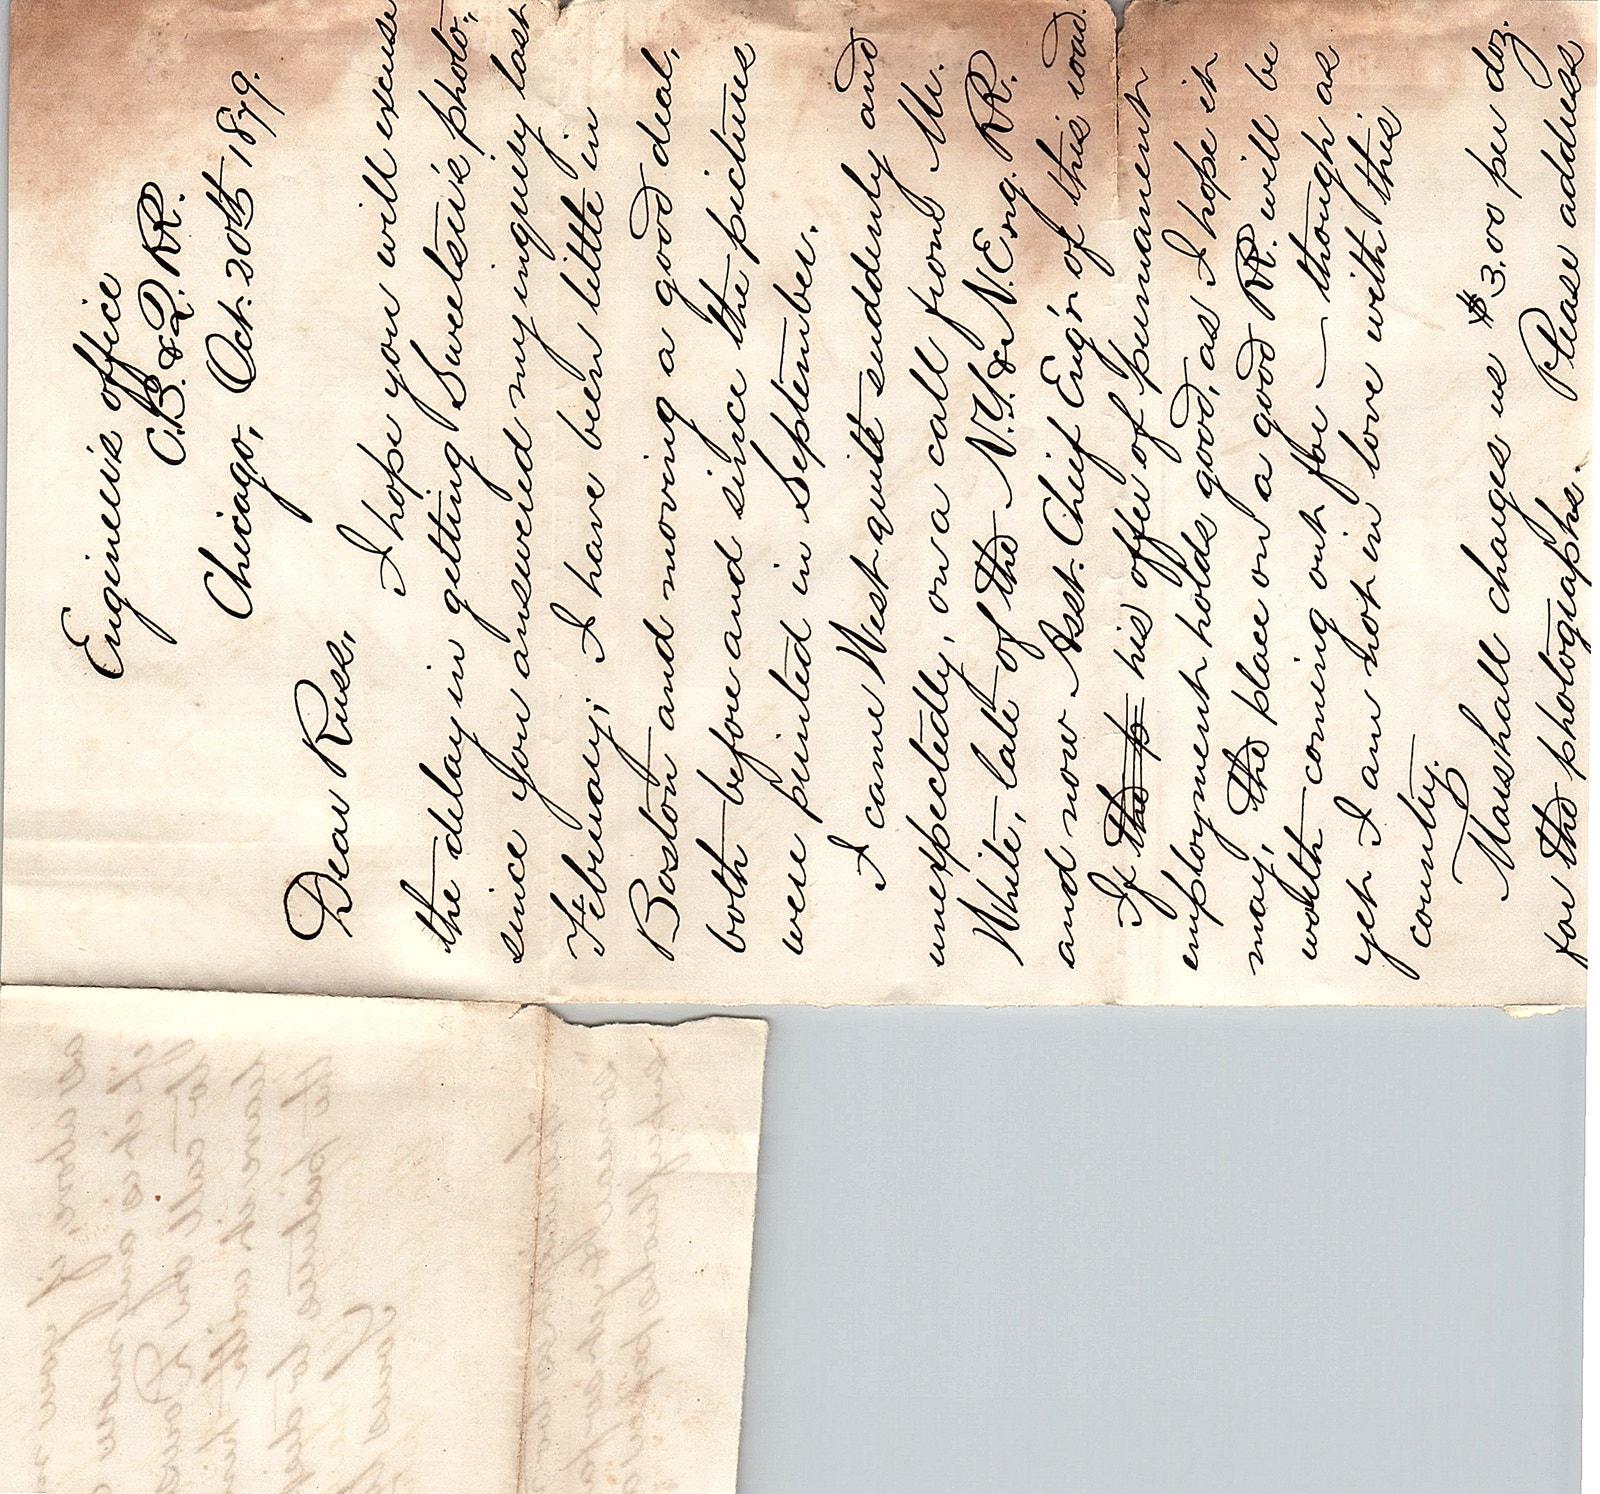 Engineer's office
C.B. & Q. RR.
Chicago, Oct. 20th 1879.
Dear Russ,
I hope you will excuse
the delay in getting Sweetser's photo-;
since you answered my inquiry last
February; I have been little in
Boston and moving a good deal,
both before and since the pictures
were printed in September.
I came West quite suddenly and
unexpectedly, on a call from Mr.
White, late of the N.Y. & N. Eng. RR.
and now Asst. Chief Eng'r of this road.
If the p his offer of permanent
employment holds good, as I hope it
may, the place on a good RR. will be
worth coming out for — though as
yet I am not in love with this
country.
Marshall charges us $3.00 per doz.
for the photographs. Please address